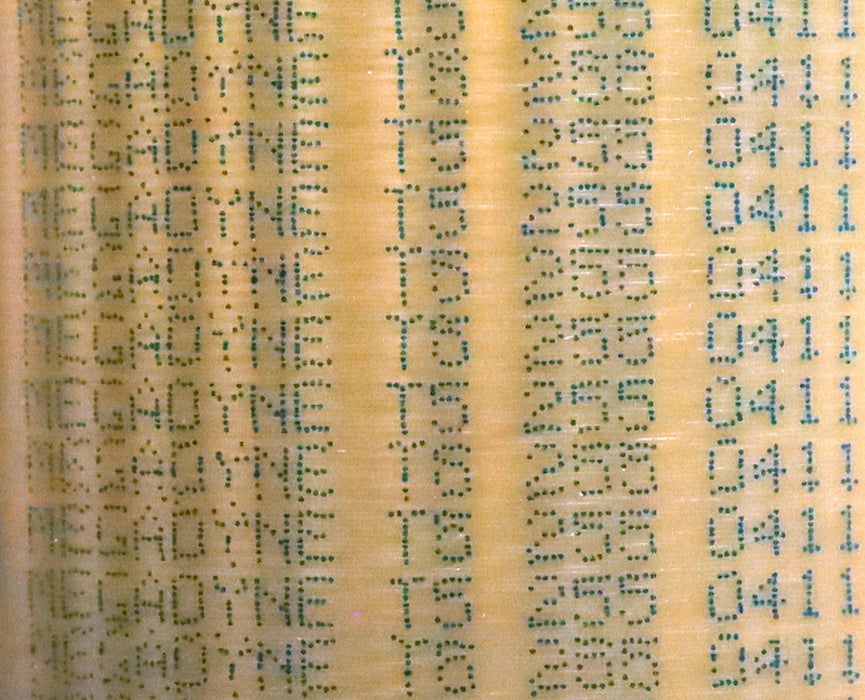 MEGADYNE T5 0411
MEGADYNE T5 0411
MEGADYNE T5 0411
MEGADYNE T5 0411
MEGADYNE T5 0411
MEGADYNE T5 0411
MEGADYNE T5 0411
MEGADYNE T5 0411
MEGADYNE T5 0411
MEGADYNE T5 0411
MEGADYNE T5 0411